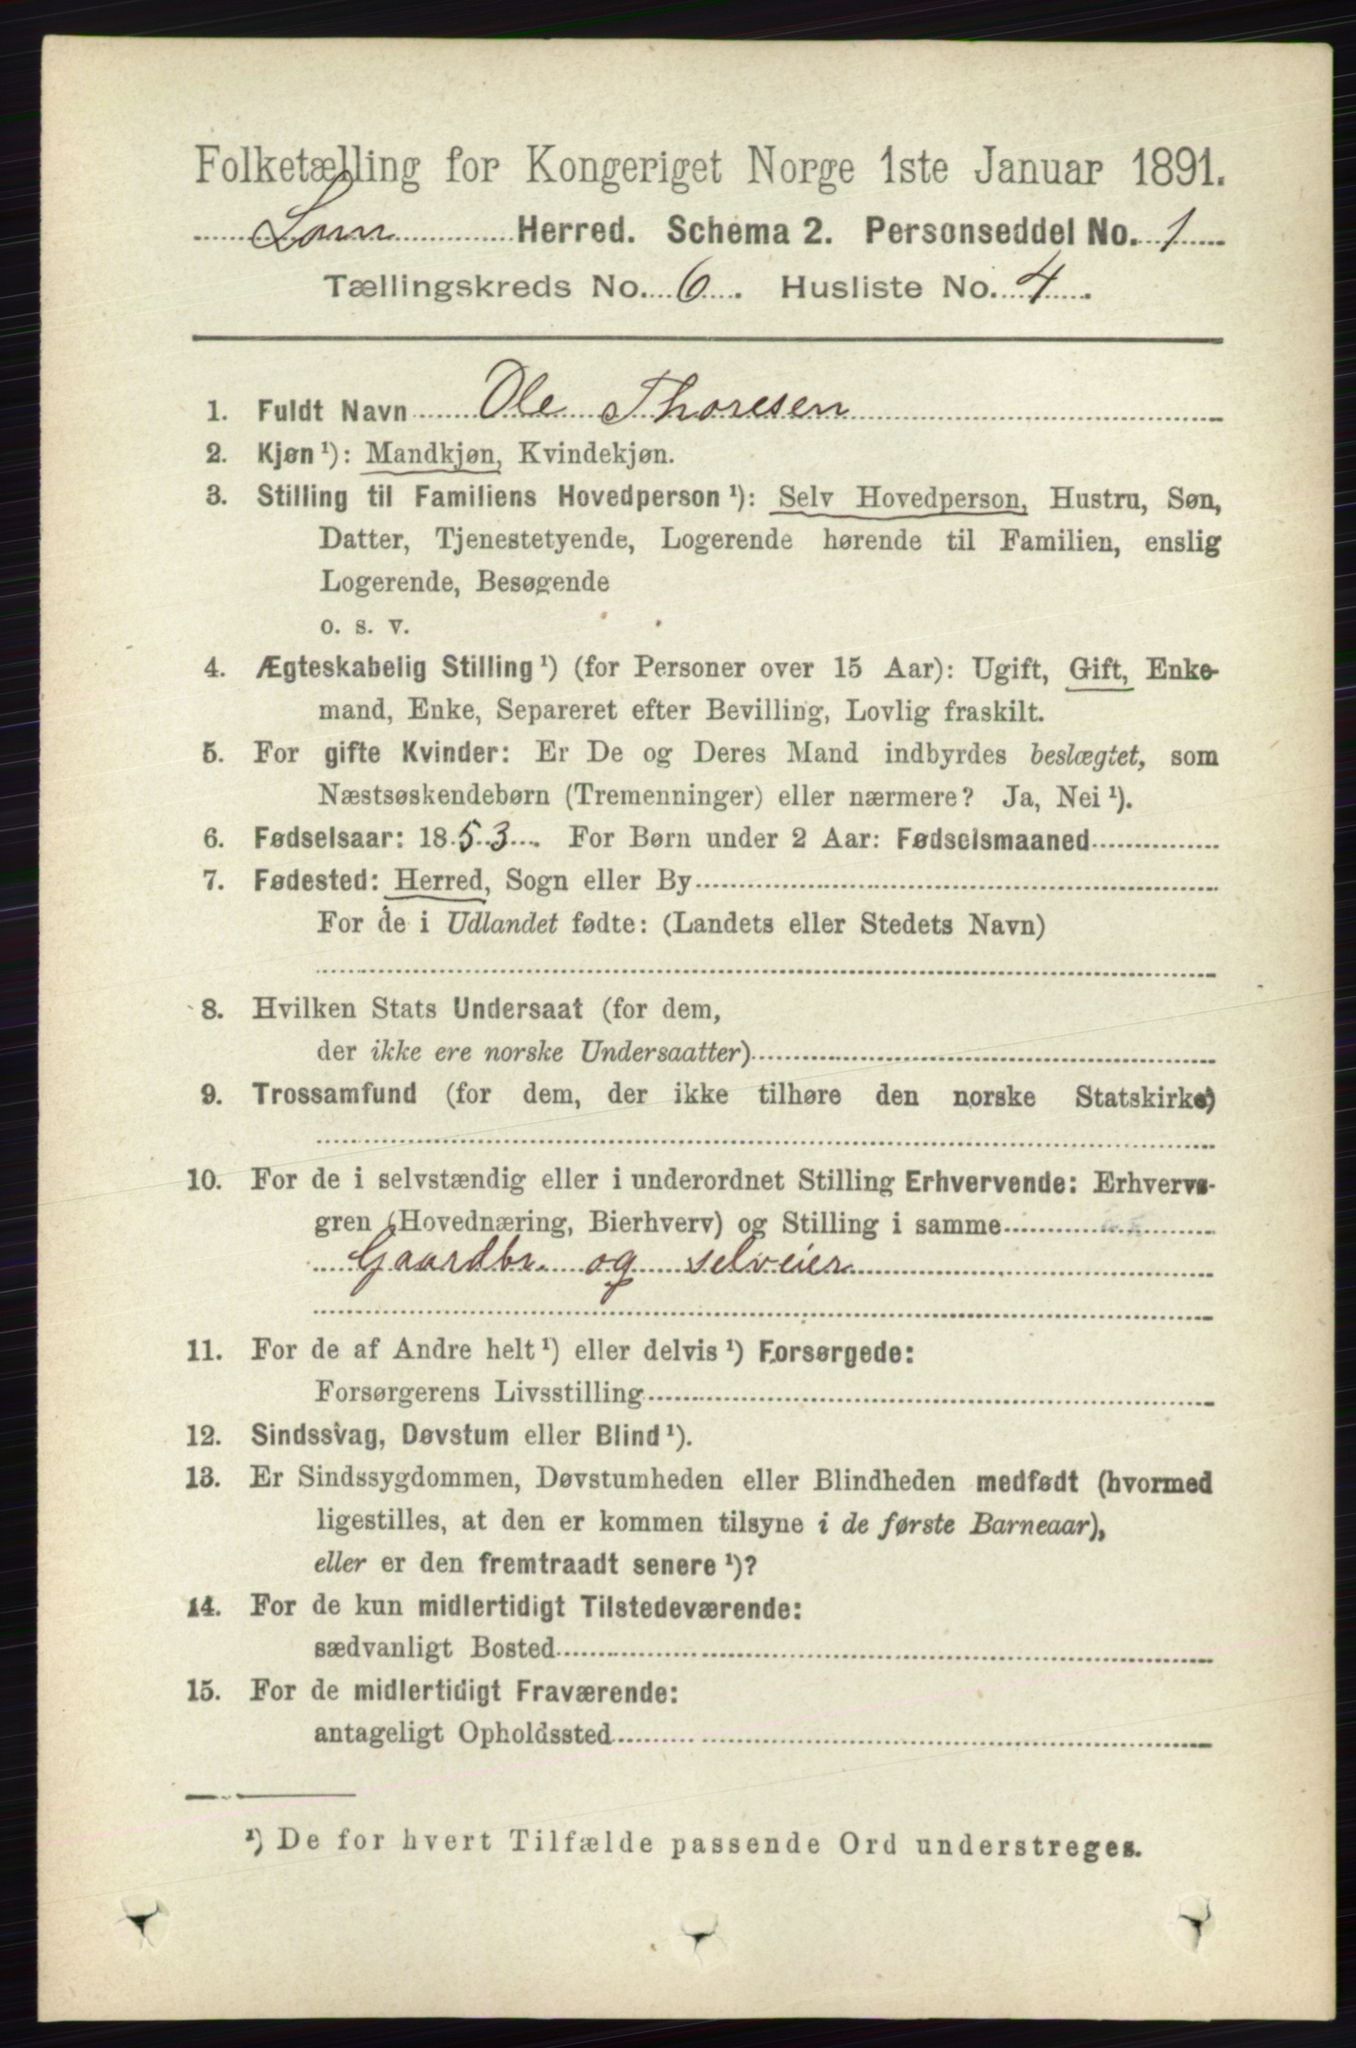 Folketælling for Kongeriget Norge 1ste Januar 1891.
Lom Herred. Schema 2. Personseddel No. 1
Tællingskreds No. 6. Husliste No. 4.
1. Fuldt Navn Ole Thoresen
2. Kjøn ¹): Mandkjøn, Kvindekjøn.
3. Stilling til Familiens Hovedperson ¹): Selv Hovedperson, Hustru, Søn,
Datter, Tjenestetyende, Logerende hørende til Familien, enslig
Logerende, Besøgende
o. s. v.
4. Ægteskabelig Stilling ¹) (for Personer over 15 Aar): Ugift, Gift, Enke-
mand, Enke, Separeret efter Bevilling, Lovlig fraskilt.
5. For gifte Kvinder: Er De og Deres Mand indbyrdes beslægtet, som
Næstsøskendebørn (Tremenninger) eller nærmere? Ja, Nei ¹).
6. Fødselsaar: 1853. For Børn under 2 Aar: Fødselsmaaned
7. Fødested: Herred, Sogn eller By
For de i Udlandet fødte: (Landets eller Stedets Navn)
8. Hvilken Stats Undersaat (for dem,
der ikke ere norske Undersaatter)
9. Trossamfund (for dem, der ikke tilhøre den norske Statskirke)
10. For de i selvstændig eller i underordnet Stilling Erhvervende: Erhvervs-
gren (Hovednæring, Bierhverv) og Stilling i samme
Gaardbr. og selveier
11. For de af Andre helt ¹) eller delvis ¹) Forsørgede:
Forsørgerens Livsstilling
12. Sindssvag, Døvstum eller Blind ¹).
13. Er Sindssygdommen, Døvstumheden eller Blindheden medfødt (hvormed
ligestilles, at den er kommen tilsyne i de første Barneaar),
eller er den fremtraadt senere ¹)?
14. For de kun midlertidigt Tilstedeværende:
sædvanligt Bosted
15. For de midlertidigt Fraværende:
antageligt Opholdssted
¹) De for hvert Tilfælde passende Ord understreges.